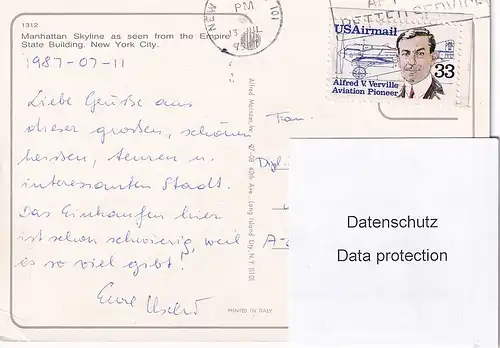 1312
Manhattan Skyline as seen from the Empire
State Building. New York City.
1987-07-11
Liebe Grüße aus
dieser großen, schönen
heissen, teuren u.
interessanten Stadt.
Das Einkaufen hier
ist schon schwierig, weil
es so viel gibt!
Eure
PRINTED IN ITALY
Alfred Mainzer, Inc. 27-08 40th Ave., Long Island City, N.Y. 11101
NEW
PM
13
USAirmail
33
Alfred V. Verville
Aviation Pioneer
Datenschutz
Data protection